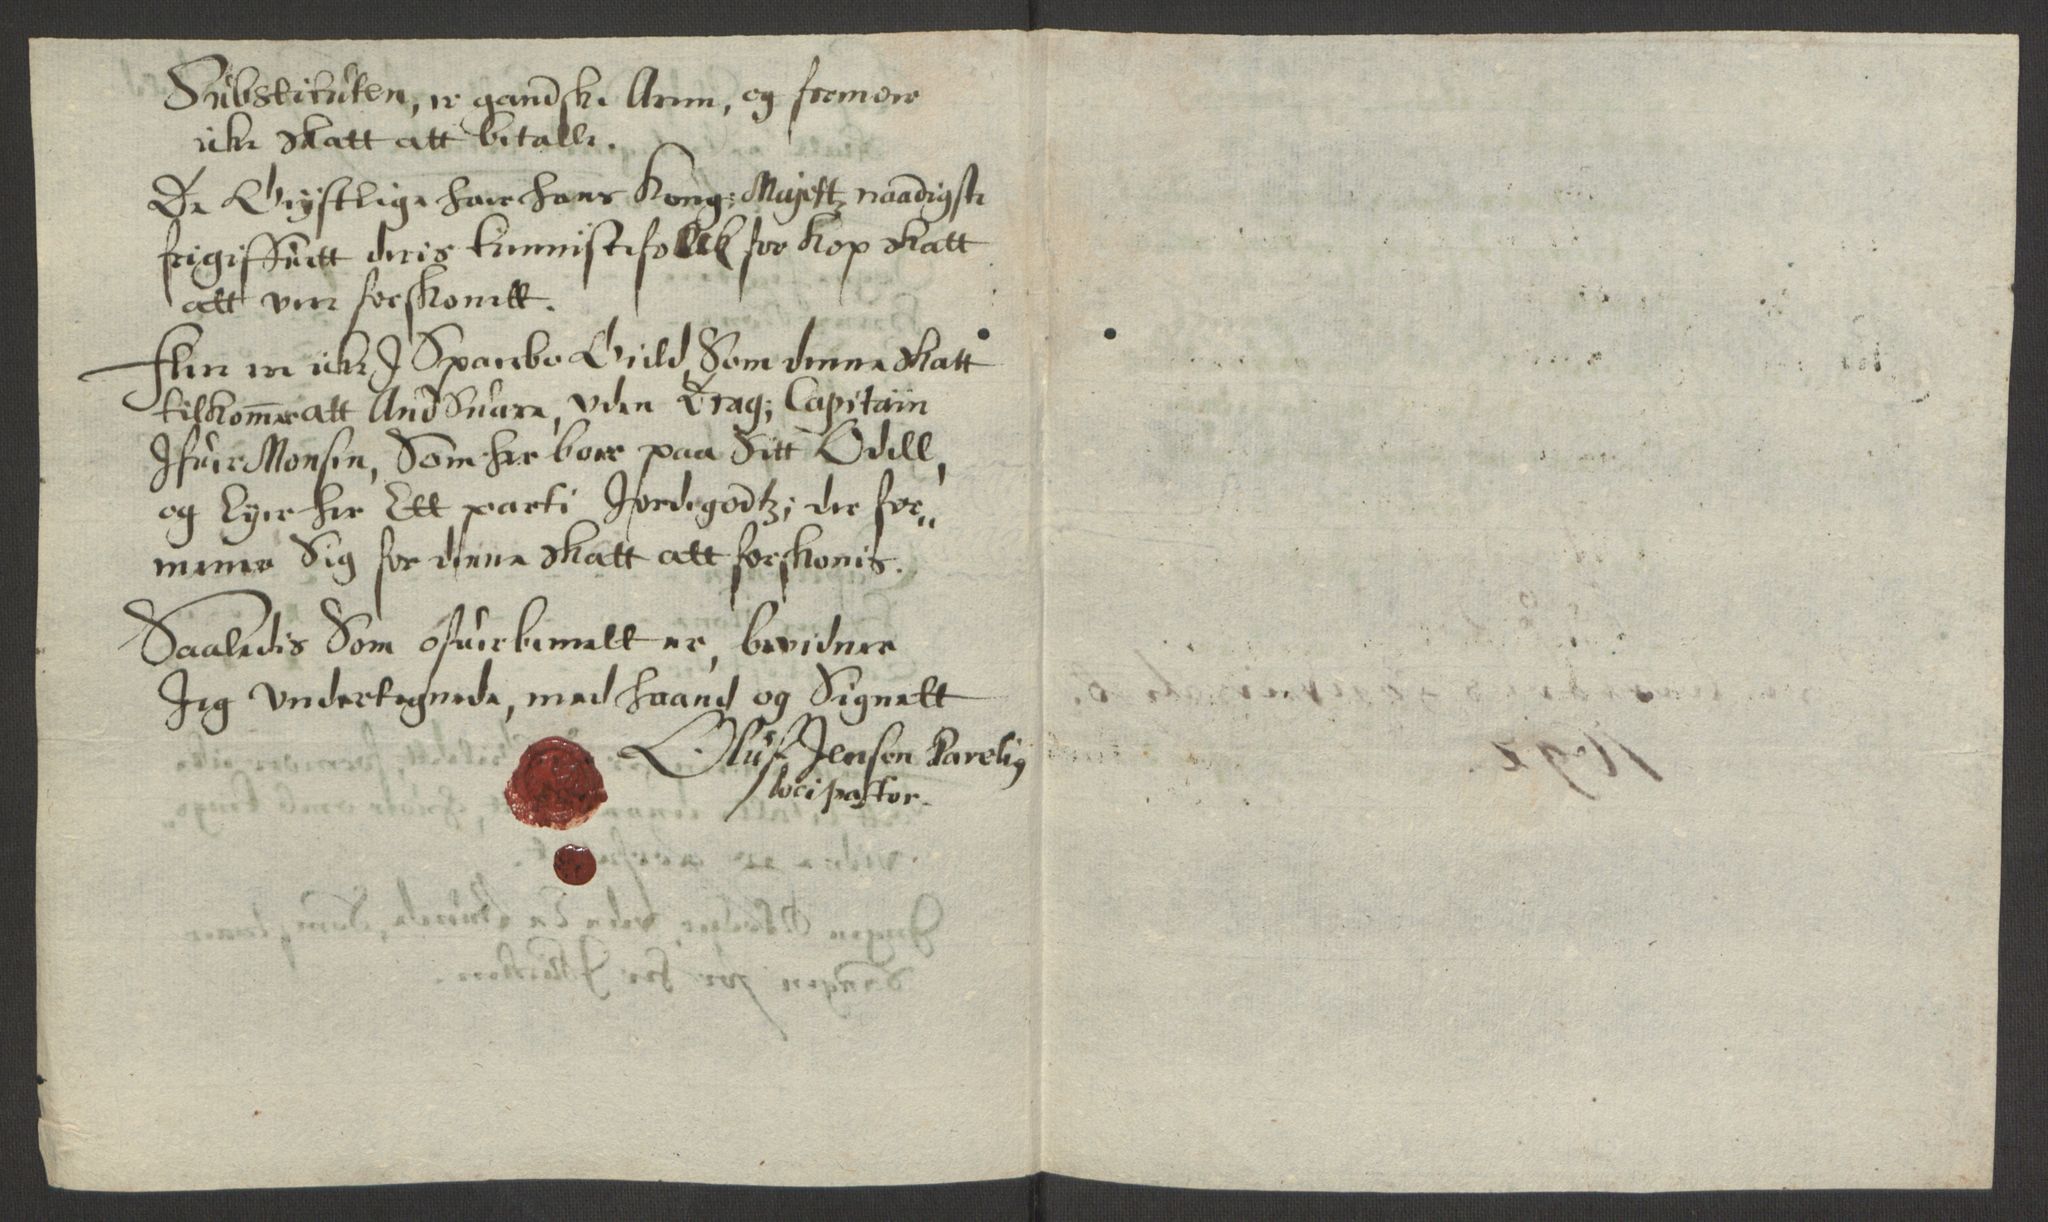 Substituten, er gandske Arm, og formoer
icke skatt att betalle.
De Gejstlige haer hans Kong: Majestz naadigste
frigiffuett deris tienniste folck for Kop skatt
att vere forskonett.
Flere ere icke J Sparbo Gield, Som denne skatt
tilkommer att Andsuare, vden Drag; Capitaiin
Jfuer Monsen, Som her boer paa Sitt Odell,
og Eyer her Ett parti Jordegodtz; der for„
mener Sig for denne skatt att forskonis.
Saaledis Som ofuerbemelt er, bevidner
Jeg vndertegnede, med haand og Signett
Oluf Jensen Parelig
loci pastor.